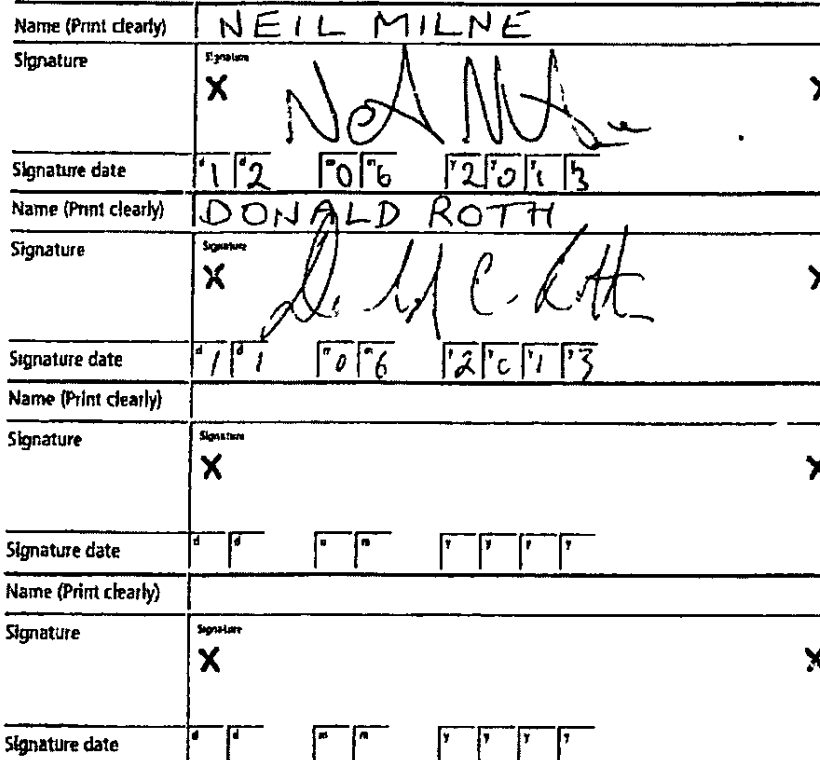 Name (Print clearly) NEIL MILNE
Signature Signature
X X
Signature date d1 d2 m0 m6 y2 y0 y1 y3
Name (Print clearly) DONALD ROTH
Signature Signature
X X
Signature date d1 d1 m0 m6 y2 y0 y1 y3
Name (Print clearly)
Signature Signature
X X
Signature date d d m m y y y y
Name (Print clearly)
Signature Signature
X X
Signature date d d m m y y y y